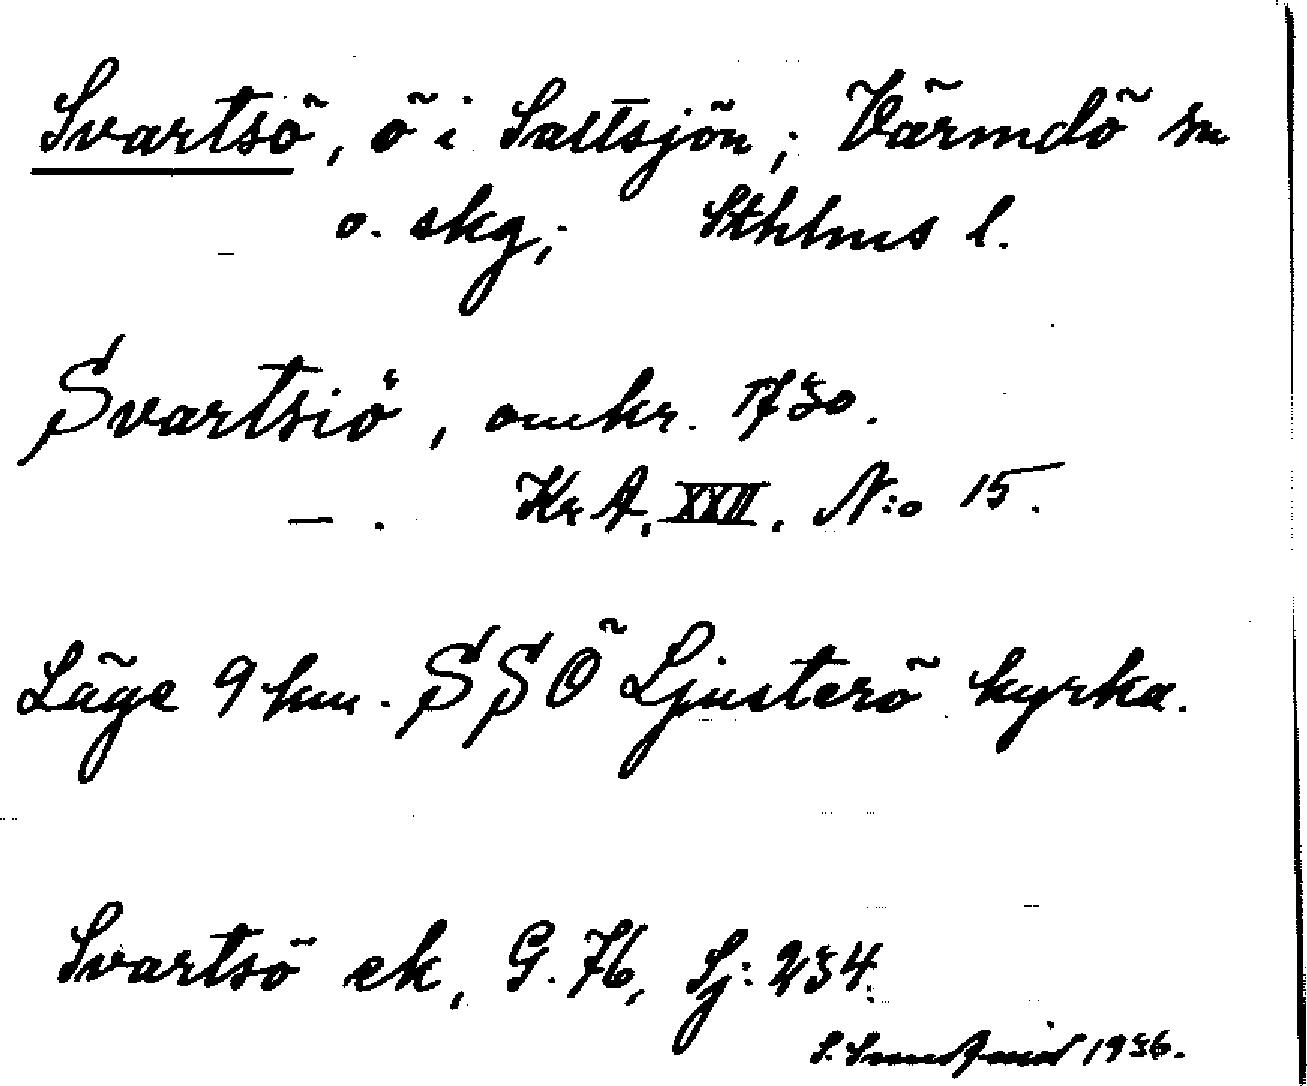 Svartsö, ö i Saltsjön; Värmdö sn
o. skg; Sthlms l.
Svartsiö, omkr. 1730.
— . Kr A. XXII. N:o 15.
Läge 9 km. SSÖ Ljusterö kyrka.
Svartsö ek, G. 76, Sj: 234.
S. 1936.